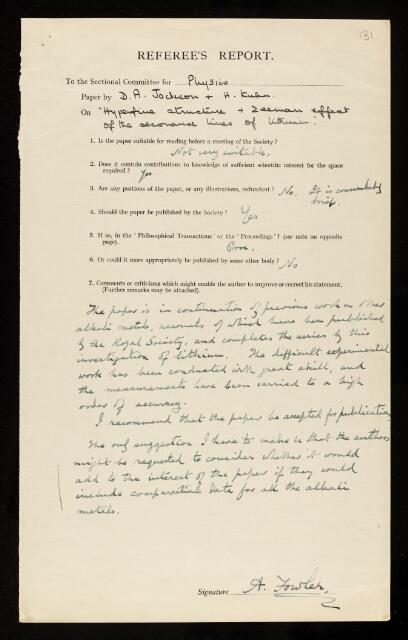 131
REFEREE'S REPORT.
To the Sectional Committee for Physics
Paper by D. A. Jackson + H. Kuhn.
On "Hyperfine structure + Zeeman effect
of the resonance lines of lithium."
1. Is the paper suitable for reading before a meeting of the Society?
Not very suitable.
2. Does it contain contributions to knowledge of sufficient scientific interest for the space
required? Yes
3. Are any portions of the paper, or any illustrations, redundant? No. It is commendably
brief.
4. Should the paper be published by the Society? Yes
5. If so, in the 'Philosophical Transactions' or the 'Proceedings'? (see note on opposite
page). Proc.
6. Or could it more appropriately be published by some other body? No
7. Comments or criticisms which might enable the author to improve or correct his statement.
(Further remarks may be attached).
The paper is in continuation of previous work on other
alkali metals, accounts of which have been published
by the Royal Society, and completes the series by this
investigation of lithium. The difficult experimental
work has been conducted with great skill, and
the measurements have been carried to a high
order of accuracy.
I recommend that the paper be accepted for publication
The only suggestion I have to make is that the authors
might be requested to consider whether it would
add to the interest of the paper if they could
include comparative data for all the alkali
metals.
Signature A. Fowler.